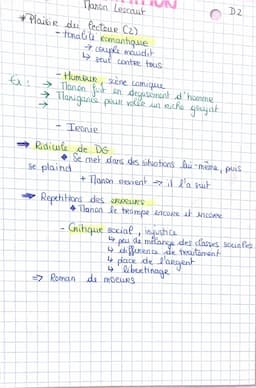 Manon Lescaut
D2
* Plaisir du lecteur (2)
- tonalité romantique
→ couple maudit
↳ seul contre tous
- Humour, scène comique
Ex : → Manon fuit en déguisement d'homme
→ Manigance pour voler un riche
→
- Ironie
⇒ Ridicule de DG
◆ Se met dans des situations lui-même, puis
se plaind
+ Manon revient → il l'a suit
→ Repetitions des erreurs
◆ Manon le trompe encore et encore
- Critique social, injustice
↳ peu de mélange des classes sociales
↳ différence de traitement
↳ place de l'argent
↳ libertinage
⇒ Roman de moeurs